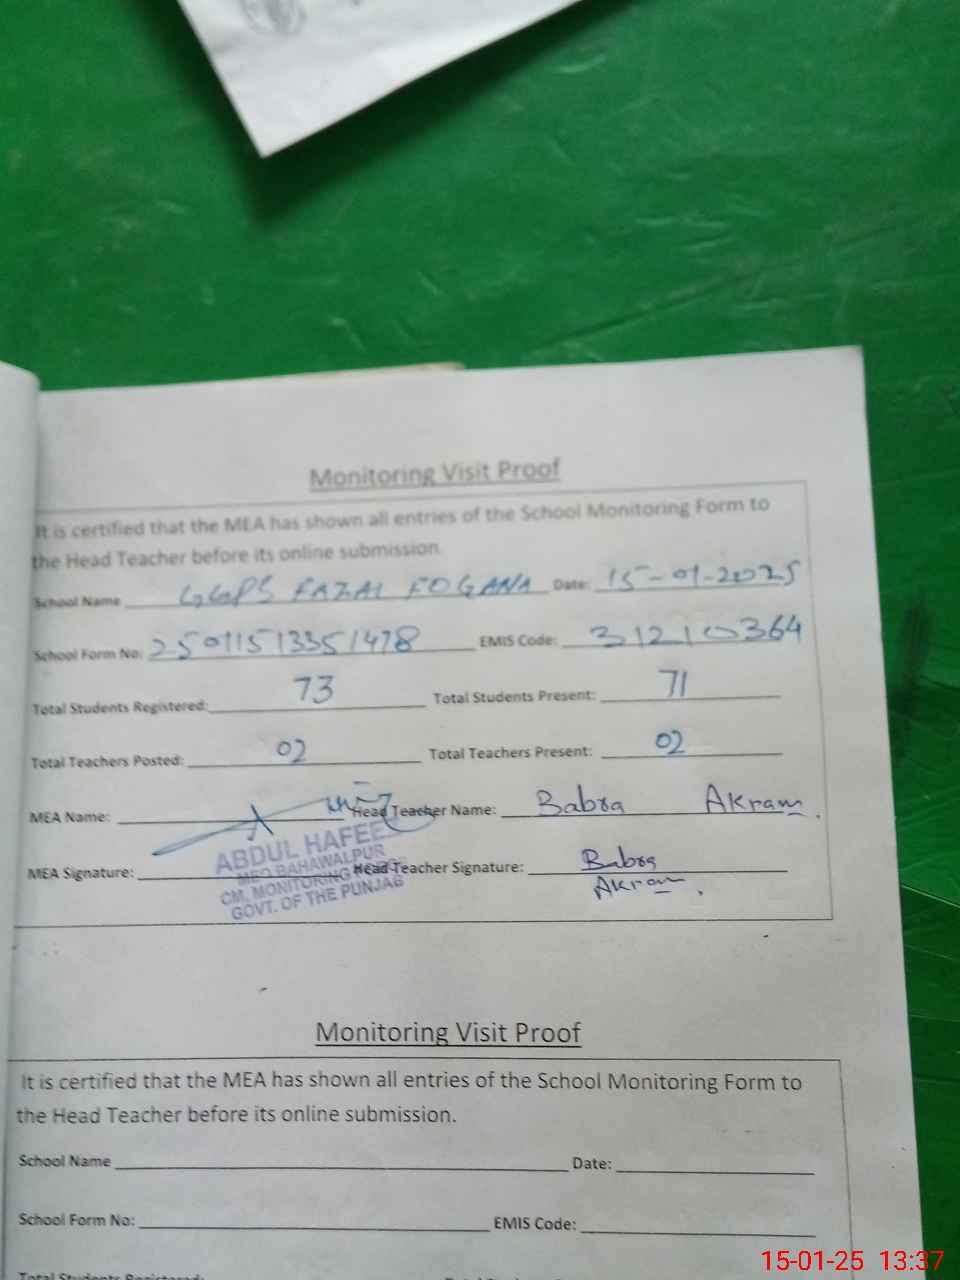 Monitoring Visit Proof
It is certified that the MEA has shown all entries of the School Monitoring Form to
the Head Teacher before its online submission.
School Name GGPS FAZAL FOGANA Date: 15-01-2025
School Form No: 25011513351478 EMIS Code: 31210364
Total Students Registered: 73 Total Students Present: 71
Total Teachers Posted: 02 Total Teachers Present: 02
MEA Name: Head Teacher Name: Babra Akram.
ABDUL HAFEE
MEO BAHAWALPUR
MEA Signature: Head Teacher Signature: Babra
Akram.
CM, MONITORING
GOVT. OF THE PUNJAB
Monitoring Visit Proof
It is certified that the MEA has shown all entries of the School Monitoring Form to
the Head Teacher before its online submission.
School Name Date:
School Form No: EMIS Code:
Total Students Registered:
15-01-25 13:37